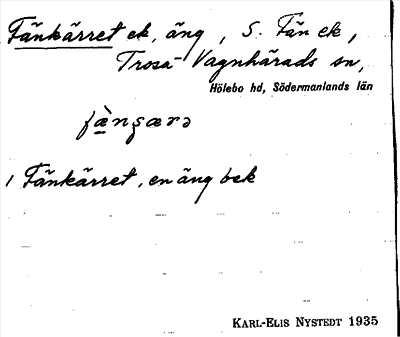 Fänkärret ek, äng, S. Fän ek,
Trosa-Vagnhärads sn,
Hölebo hd, Södermanlands län
1 Fänkärret, en äng bek
KARL-ELIS NYSTEDT 1935